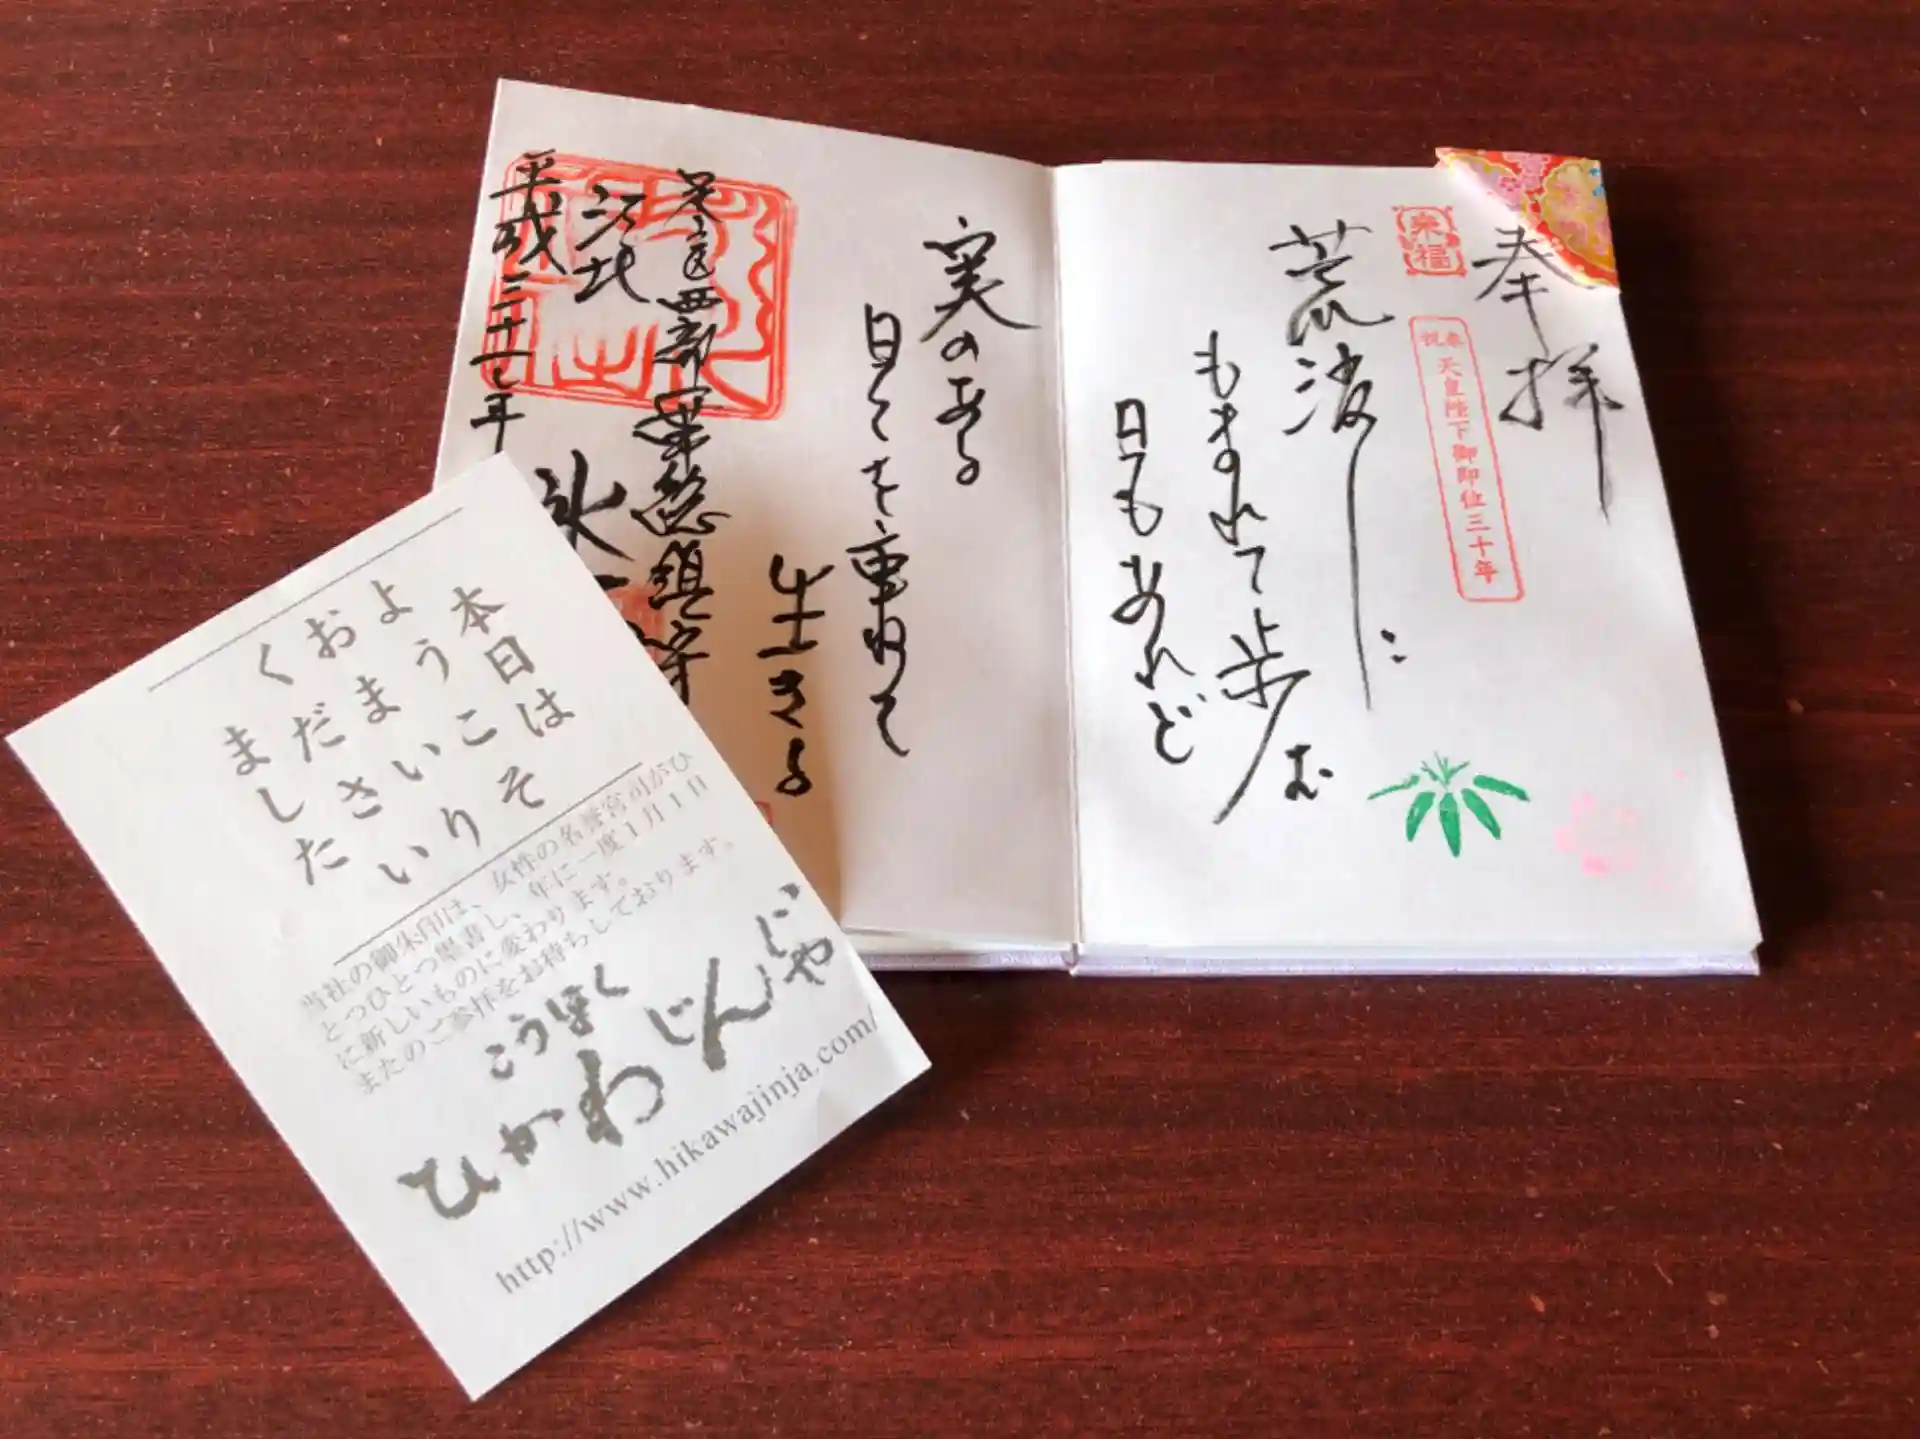 奉拝
来福
奉祝
天皇陛下御即位三十年
荒波に
もまれて歩む
日もあれど
実のある
日々を重ねて
生きる
足立区西部一円葉総鎮守
江北
氷
平成三十一年
本日は
ようこそ
おまいり
くださいました
当社の御朱印は、女性の名誉宮司がひ
とつひとつ墨書し、年に一度1月1日
に新しいものに変わります。
またのご参拝をお待ちしております。
こうほく
ひかわじんじゃ
http://www.hikawajinja.com/